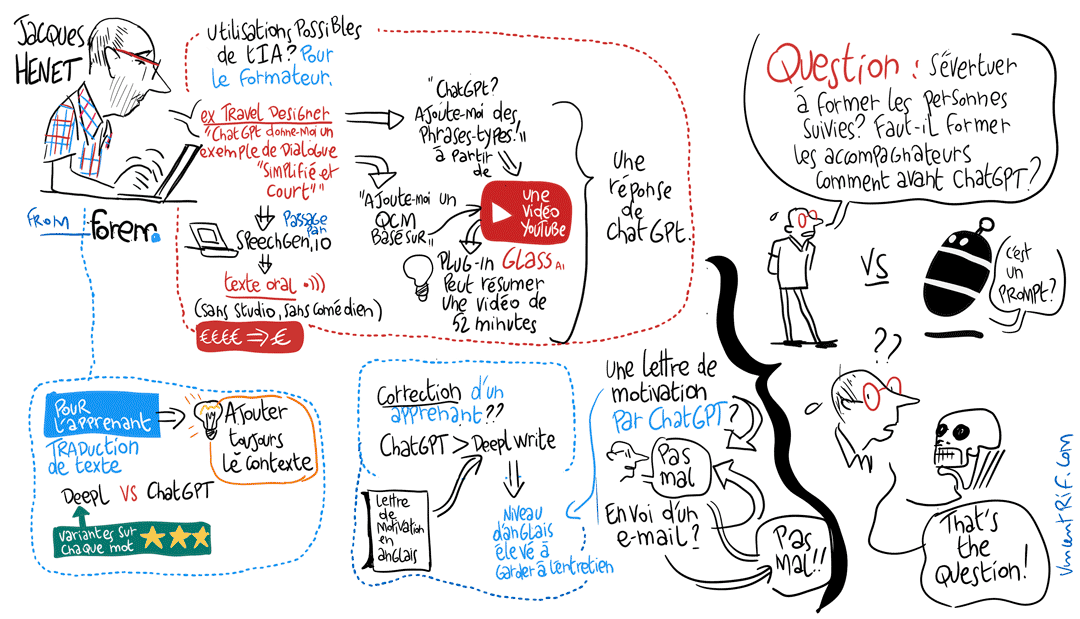 Jacques
HENET
FROM
forem.
Utilisations Possibles
de l'IA? Pour
le formateur.
ex Travel Designer
"ChatGPt donne-moi un
exemple de Dialogue
"Simplifié et
Court""
Passage
Par
SPeechGen.io
texte oral •)))
(sans studio, sans comédien)
€€€€ => €
"ChatGPt?
Ajoute-moi des
Phrases-types!"
à partir
de
"Ajoute-moi un
QCM
Basé sur"
une
vidéo
YouTuBe
PLUG-in GLASS AI
Peut résumer
une vidéo de
52 minutes
Une
réponse
de
chatGPt.
Question : S'évertuer
à former les personnes
suivies? Faut-il former
les accompagnateurs
comment avant ChatGPT?
VS
c'est
un
PROMPT?
POUR
l'apprenant
TRADUCTION
de texte
Ajouter
toujours
le contexte
DeepL VS ChatGPT
variantes sur
chaque mot
Correction d'un
apprenant??
ChatGPT > Deepl write
Lettre
de
Motivation
en
anglais
Niveau
d'anglais
élevé à
Garder à l'entretien
une lettre de
motivation
Par ChatGPT?
Pas
mal
Envoi d'un
e-mail?
Pas
mal!!
??
That's
the
Question!
VincentRif.com